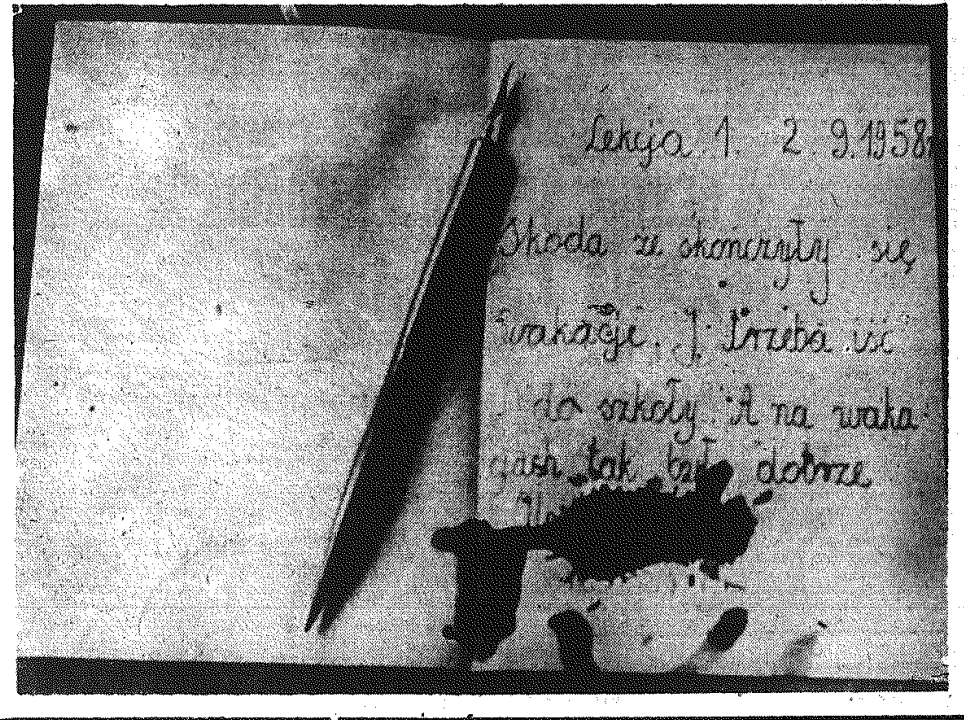 Lekcja 1. 2.9.1958r
Skoda że skończyły się
wakacje. I trzeba iść
do szkoły. A na waka-
cjach tak było dobrze